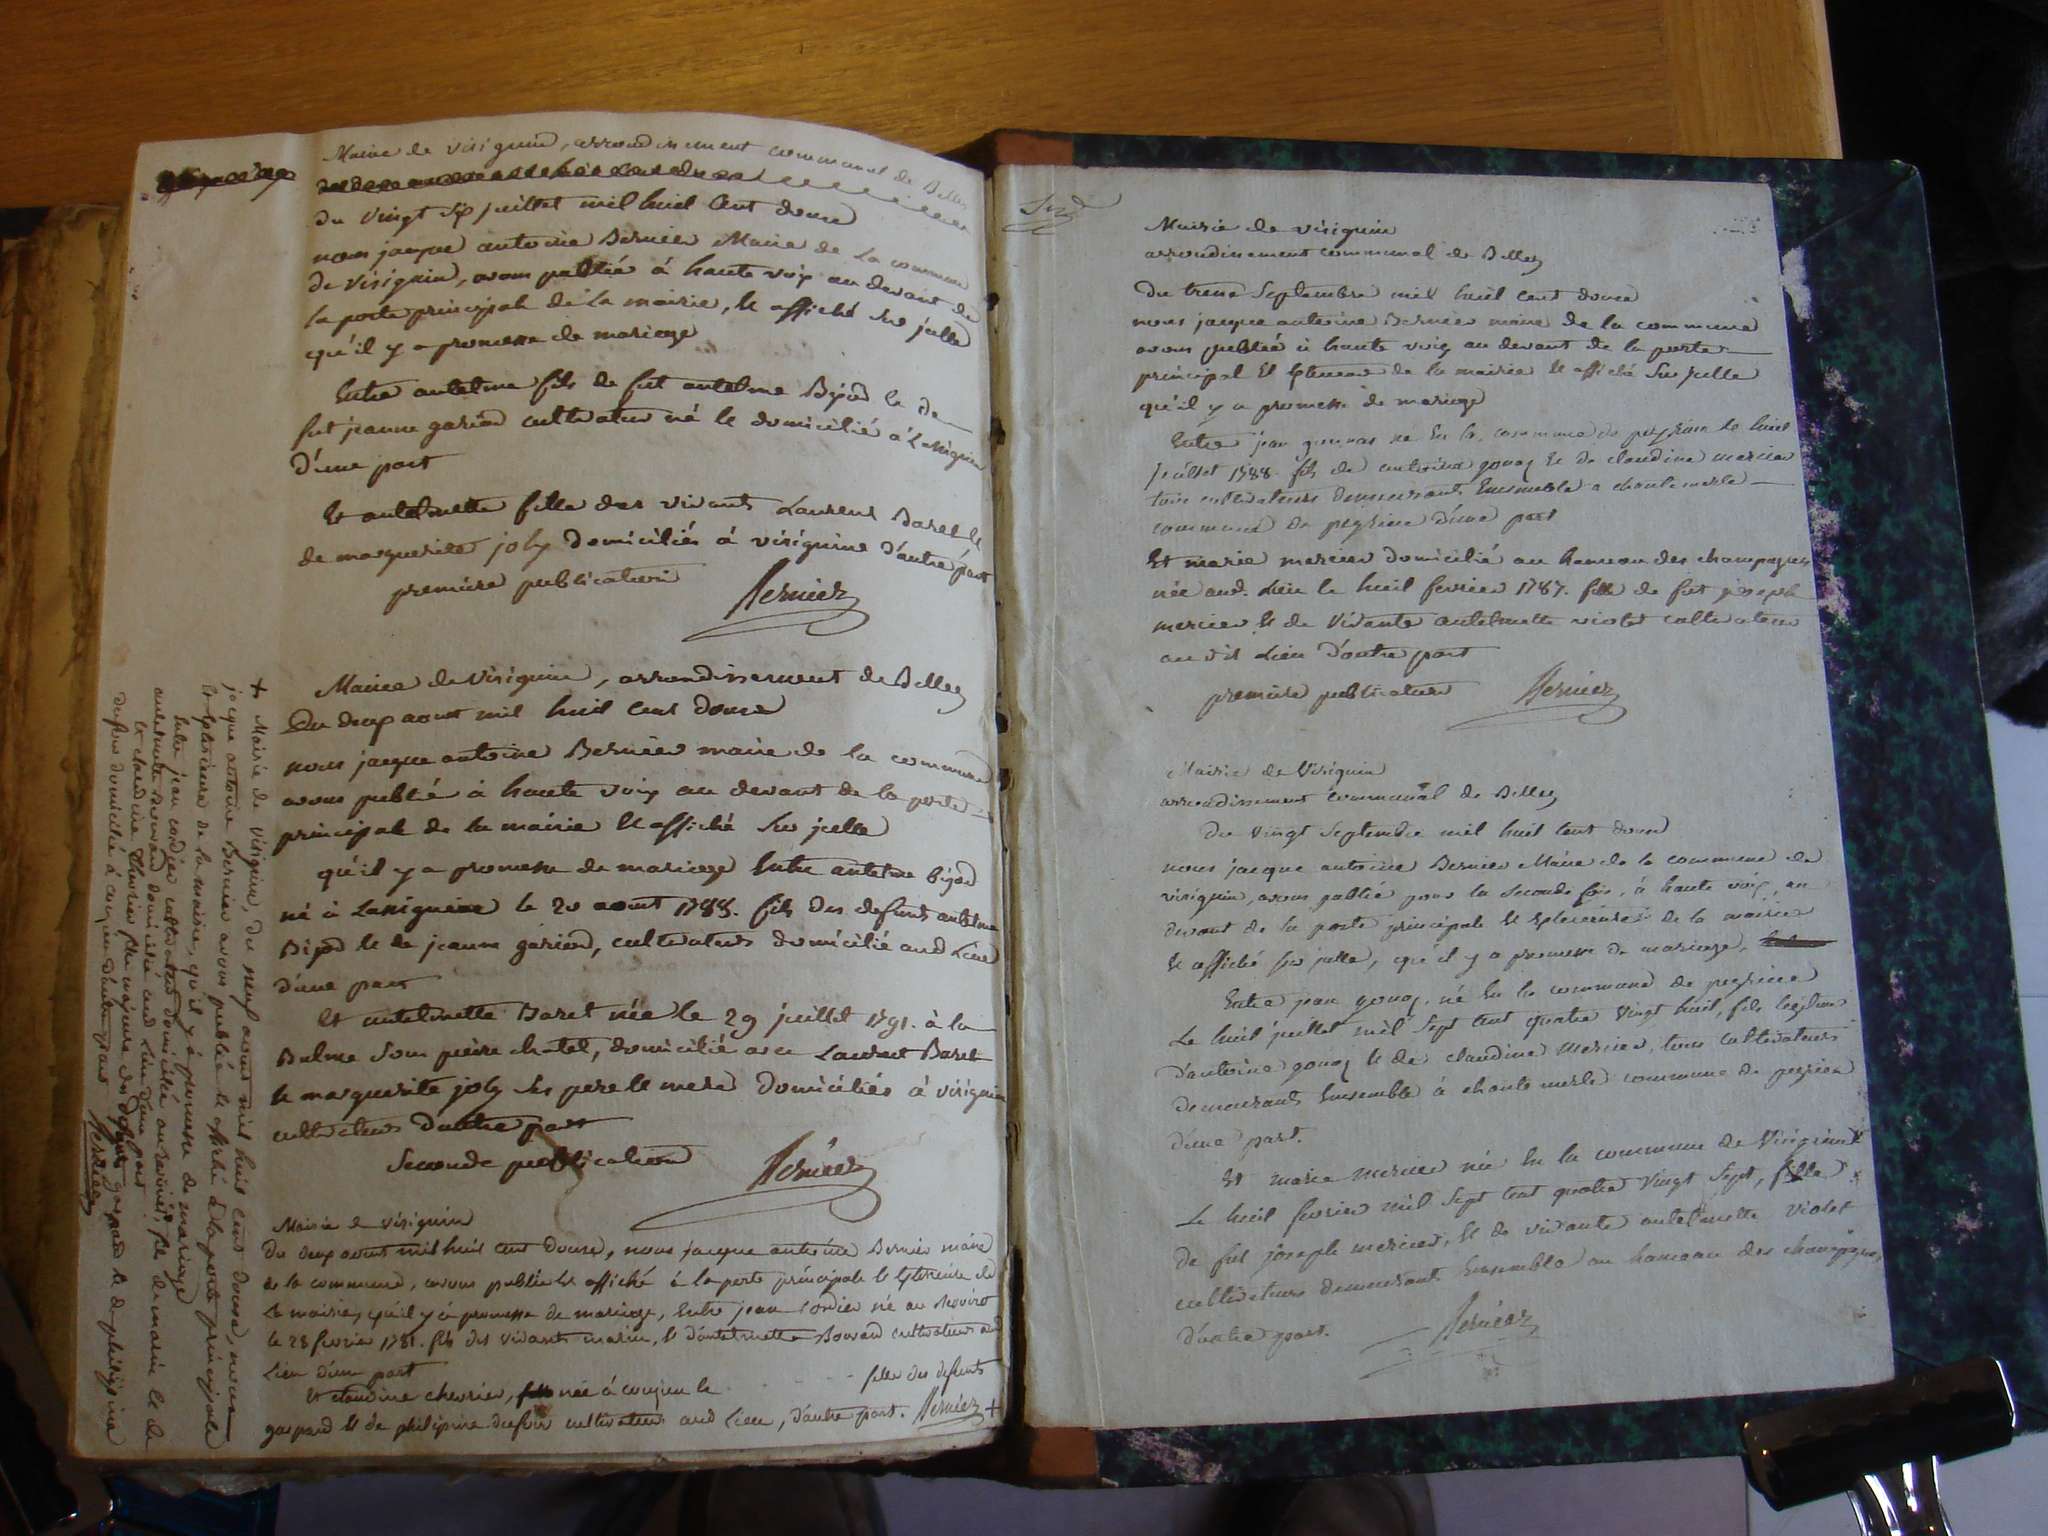 Mairie de virignin, arrondissement communal de Belley
du vingt six juillet mil huit cent douze
nous jacque antoine Bernier Maire de La commune
de virignin, avons publié à haute voix au devant de
la porte principale de la mairie, et affiché sur jcelle
qu'il y a promesse de mariage
Entre antelme fils de fut antelme Bijod et de
fut jeanne garion cultivateur né et domicilié à Lassignieu
d'une part
Et antelmette fille des vivants Laurent Baret et
de marguerite joly domiciliés à virignin d'autre part
première publication
Bernier
Mairie de Virignin, arrondissement de Belley
Du deux aout mil huit cent douze
nous jacque antoine Bernier maire de la commune
avons publié à haute voix au devant de la porte
principale de la mairie et affiché sur jcelle
qu'il y a promesse de mariage Entre antelme bijod
né à Lassignieu le 20 aout 1788. fils des defunts antelme
Bijod et de jeanne garion, cultivateurs domicilié aud Lieu
d'une part
Et antelmette Baret née le 29 juillet 1791. à la
Balme sous pierre chatel, domicilié avec Laurent Baret
et marguerite joly ses pere et mere domiciliés à virignin
cultivateurs d'autre part
Seconde publication
Bernier
Mairie de Virignin
Du deux aout mil huit cent douze, nous jacque antoine Bernier maire
de la commune, avons publié et affiché à la porte principale et Exterieure de
la mairie, qu'il y a promesse de mariage, Entre jean Cordier né au
le 28 fevrier 1781. fils des vivants marin, et d'antelmette Bouvard cultivateurs aud
Lieu d'une part
Et claudine chevrier, née à conjeu le fille des defunts
gaspard et de philipine dufour cultivateurs aud Lieu, d'autre part. Bernier +
+ Mairie de Virignin, du neuf aout mil huit cent douze, nous
jacque antoine Bernier avons publié et affiché à la porte principale
et Exterieure de la mairie, qu'il y a promesse de mariage
Entre jean cordier cultivateur domicilié au fils de marin et de
antelmette Bouvard domicilié aud Lieu d'une part
Et claudine Chevrier fille majeure des defunts gaspard et de philipine
dufour domicilié à conjeu d'autre part Bernier
Mairie de virignin
arrondissement communal de Belley
Du treize Septembre mil huit cent douze
nous jacque antoine Bernier maire de la commune
avons publié à haute voix au devant de la porte
principal et Exterieure de la mairie et affiché sur jcelle
qu'il y a promesse de mariage
Entre jean né En la commune de peyzieu le huit
juillet 1788. fils de antoine gonaz et de claudine mercier
tous cultivateurs demeurants Ensemble a chantemerle
commune de peyzieu d'une part
Et marie mercier domicilié au hameau des champagnes
née aud. Lieu le huit fevrier 1787. fille de fut joseph
mercier et de Vivante antelmette violet cultivateurs
au dit Lieu d'autre part
première publication Bernier
Mairie de Virignin
arrondissement Communal de Belley
Du Vingt Septembre mil huit cent douze
nous jacque antoine Bernier Maire de la commune de
virignin, avons publié pour la seconde fois, à haute voix, au
devant de la porte principale et Exterieure de la mairie
et affiché sur jcelle, qu'il y a promesse de mariage,
Entre jean gonaz, né En la commune de peyzieu
Le huit juillet mil Sept Cent quatre Vingt huit, fils legitime
d'antoine gonaz et de claudine Mercier, tous cultivateurs
demeurants Ensemble à chantemerle commune de peyzieu
d'une part.
Et marie mercier née En la commune de Virignin
Le huit fevrier mil Sept cent quatre Vingt Sept, fille
de fut joseph mercier, et de vivante antelmette Violet
cultivateurs demeurant Ensemble au hameau des champagnes,
d'autre part.
Bernier